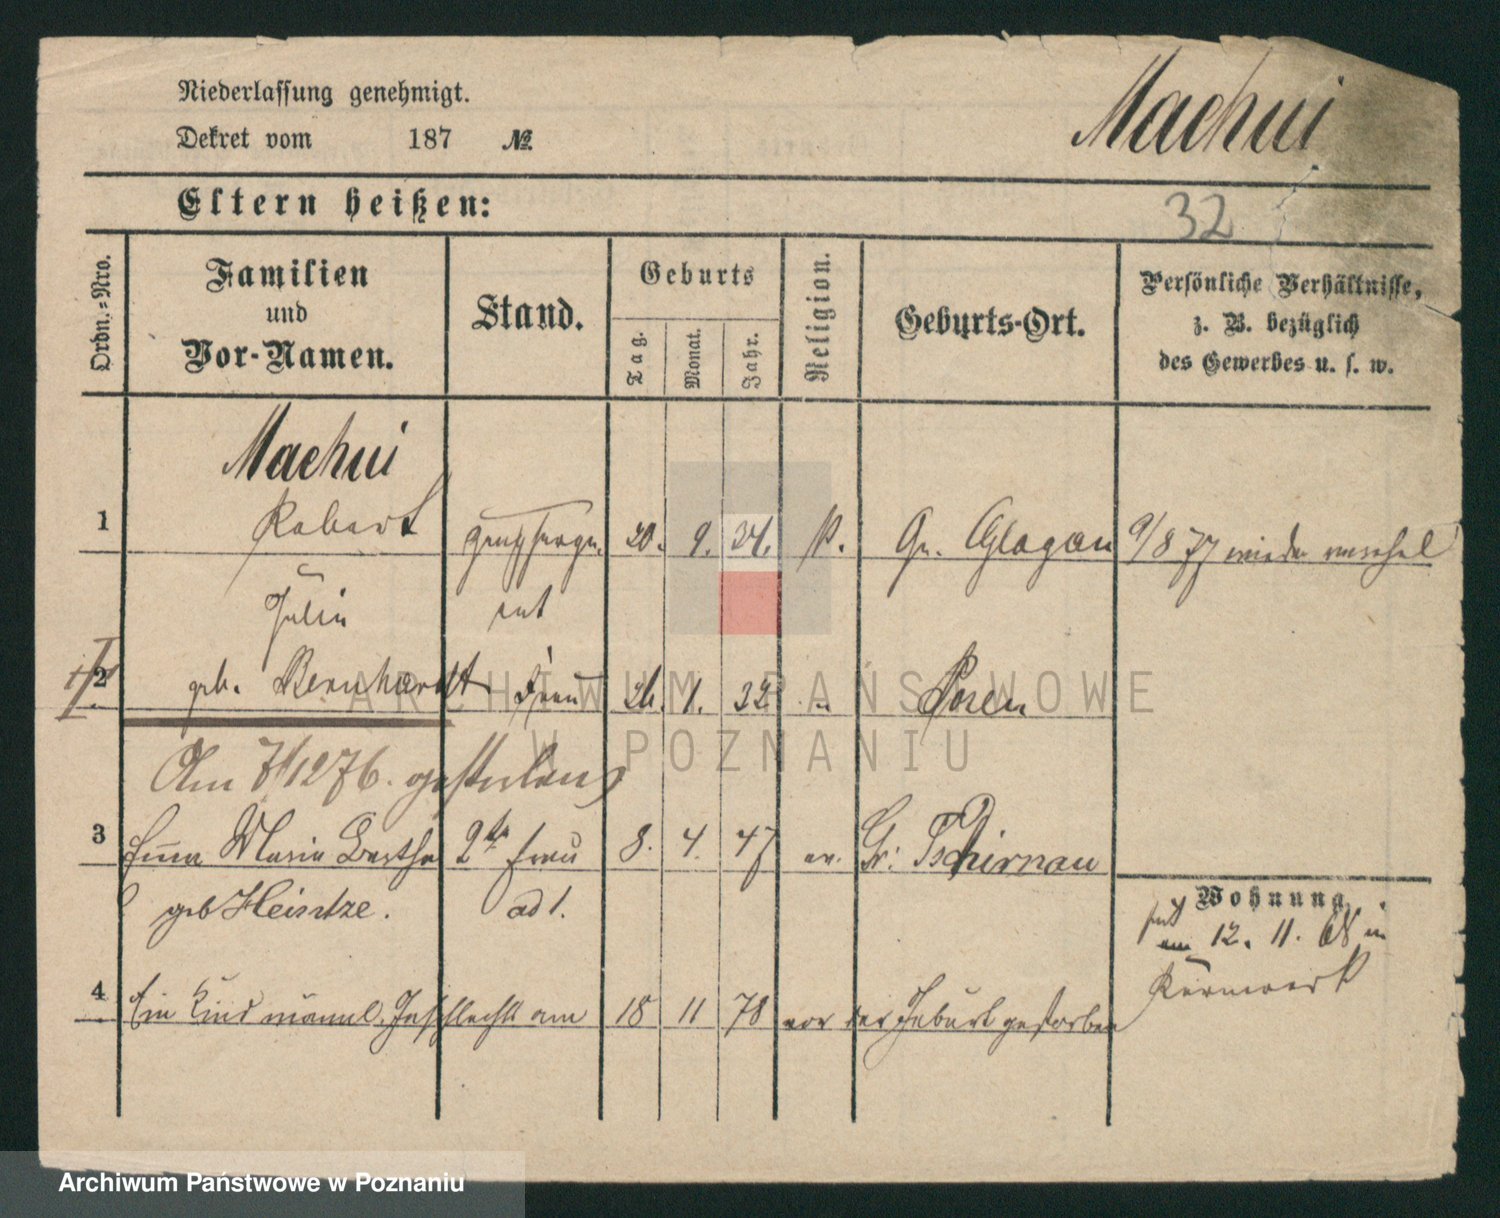 Niederlassung genehmigt.
Dekret vom 187 №
Machui
Eltern heißen:
32
Ordn.=Nro.
Familien und Vor-Namen.
Stand.
Geburts
Tag.
Monat.
Jahr.
Religion.
Geburts-Ort.
Persönliche Verhältnisse, z. B. bezüglich des Gewerbes u. s. w.
Machui
1 Robert 20. 9. 34. Gr. Glogau 9/8 77 wieder
Julia
2 geb. Bernhardt Frau 24. 1. 32. " Posen
Am 7/12 76. gestorben
3 Emma Maria Bertha 2te Frau 8. 4. 47 ev. Gr: Tschirnau
geb Heintze. ad 1.
Wohnung.
12. 11. 68 in
4 Ein Kind männl. Geschlechts am 18 11 78 vor der Geburt gestorben
ARCHIWUM PAŃSTWOWE
W POZNANIU
Archiwum Państwowe w Poznaniu